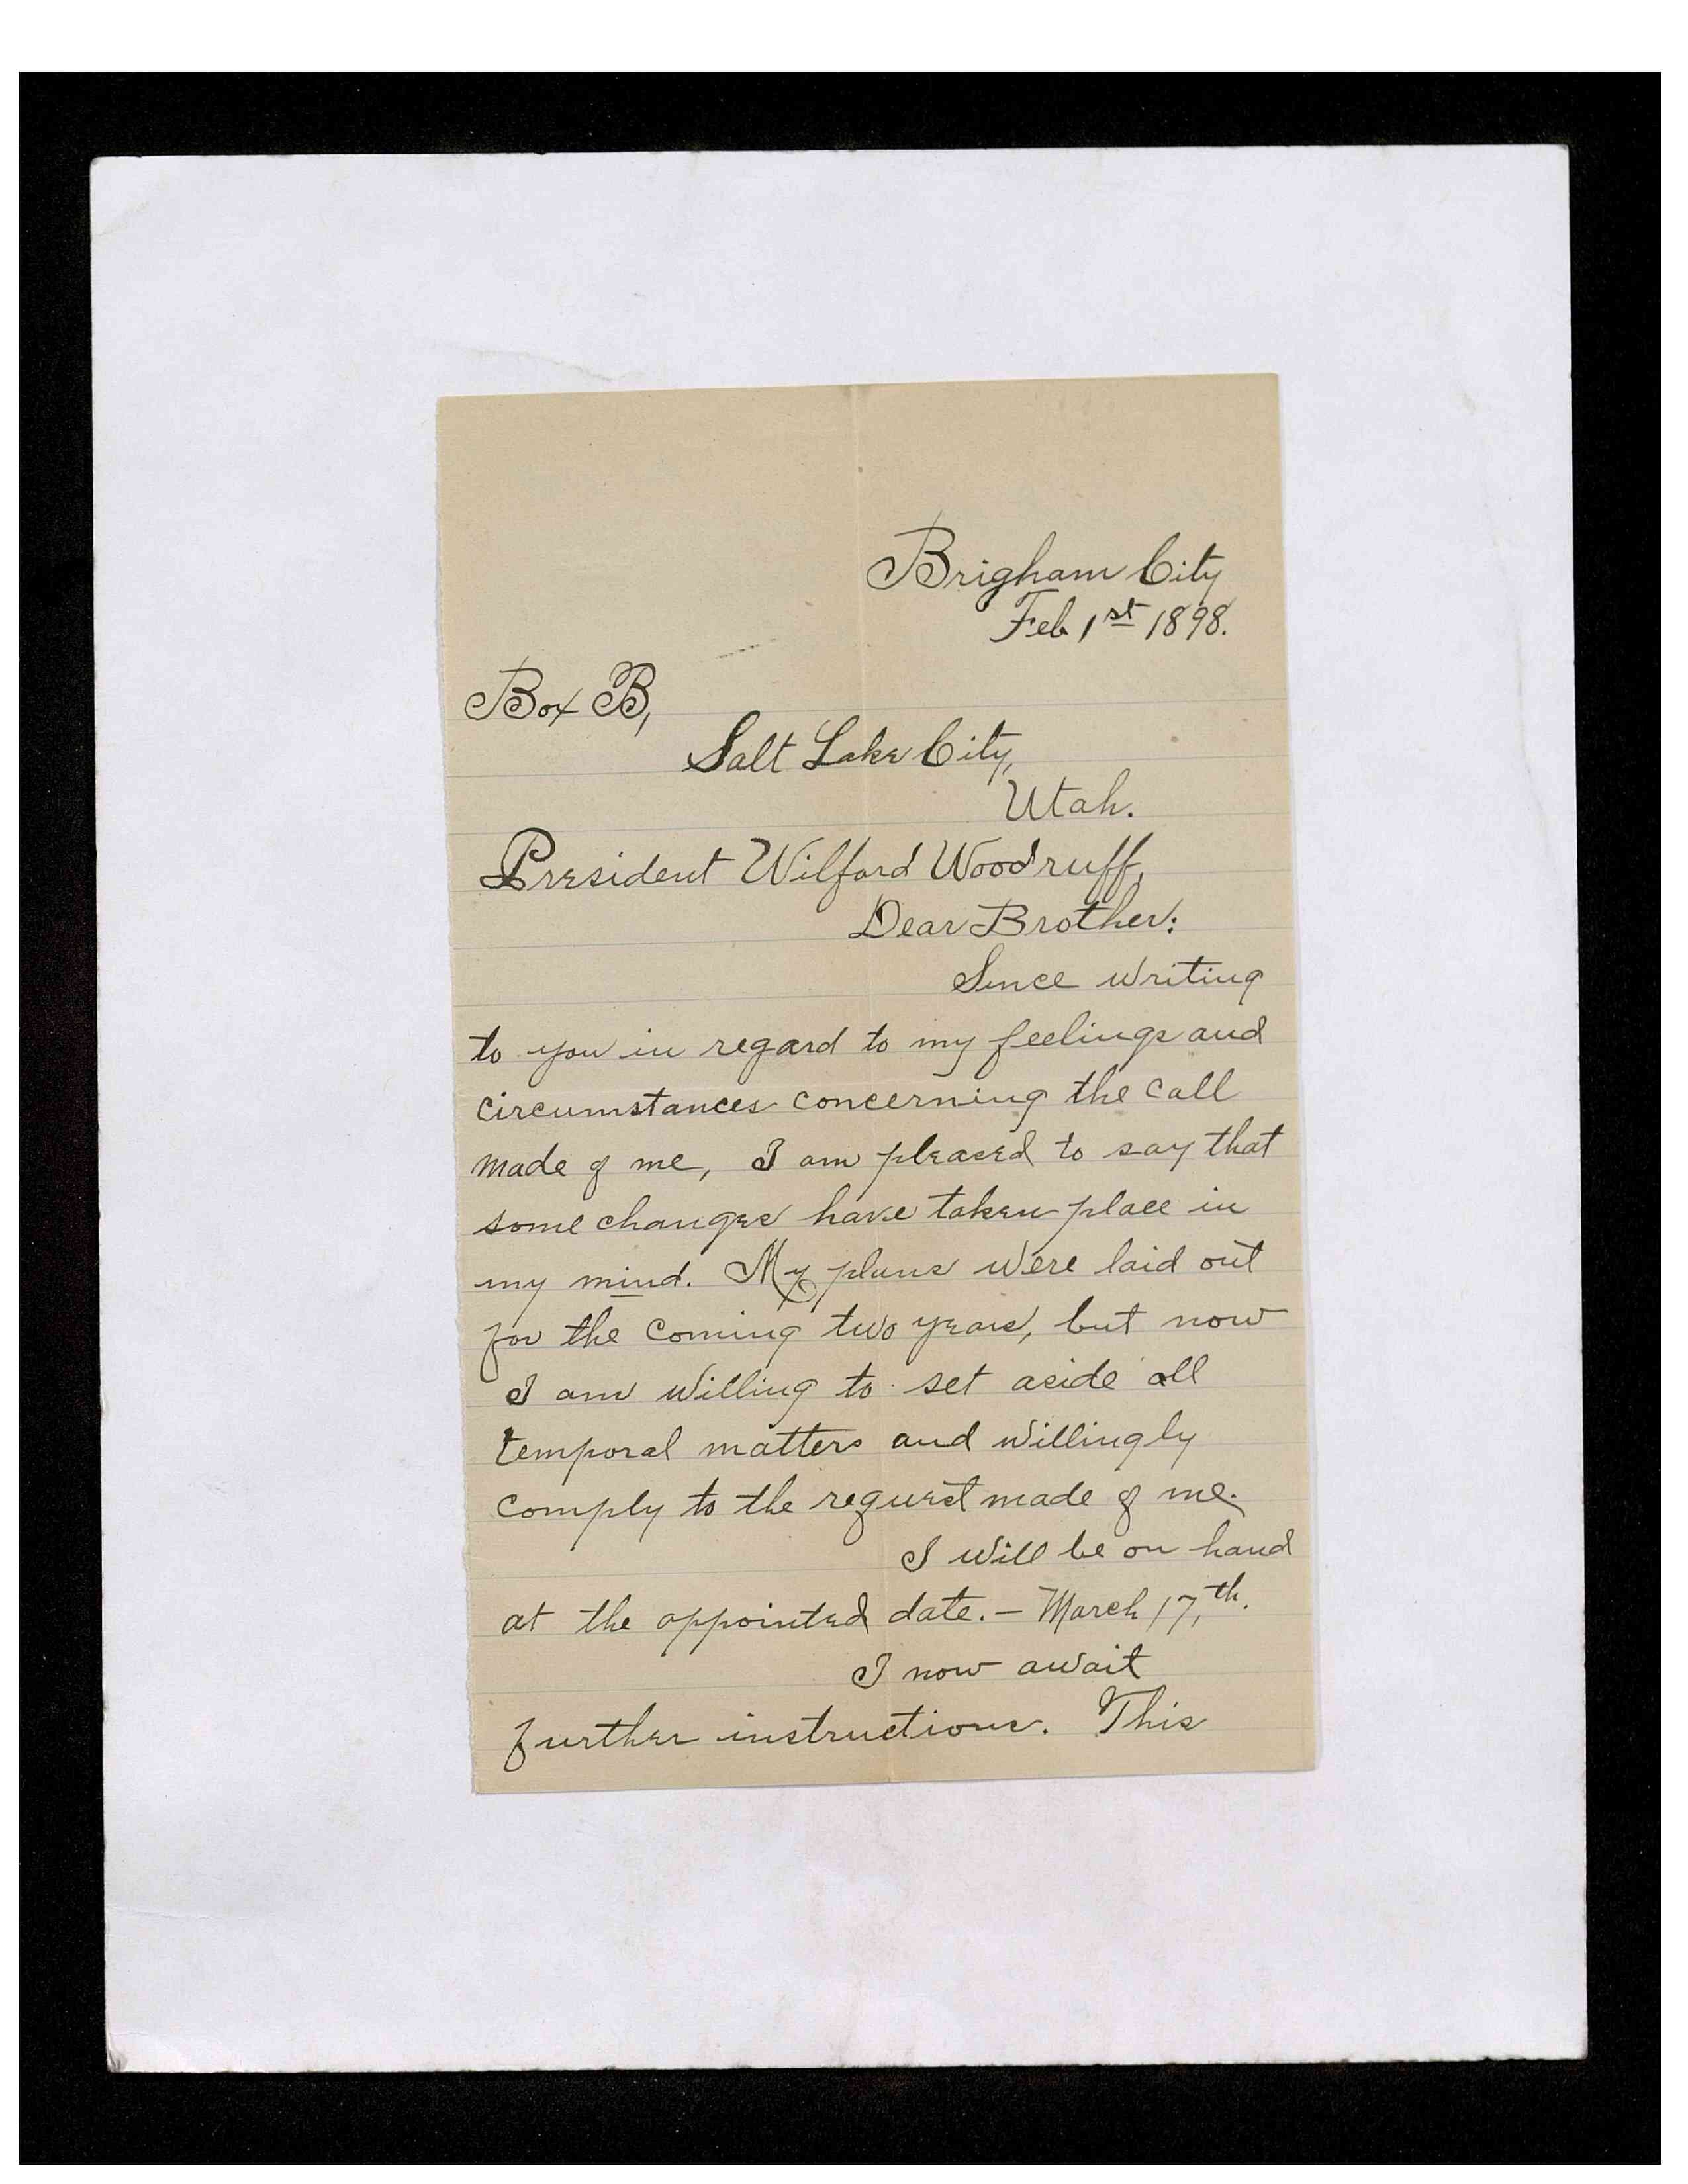 Brigham City
Feb 1st 1898.
Box B,
Salt Lake City,
Utah.
President Wilford Woodruff,
Dear Brother:
Since writing
to you in regard to my feelings and
circumstances concerning the call
made of me, I am pleased to say that
some changes have taken place in
my mind. My plans were laid out
for the coming two years, but now
I am willing to set aside all
temporal matters and willingly
comply to the request made of me.
I will be on hand
at the appointed date. – March 17,th.
I now await
further instructions. This